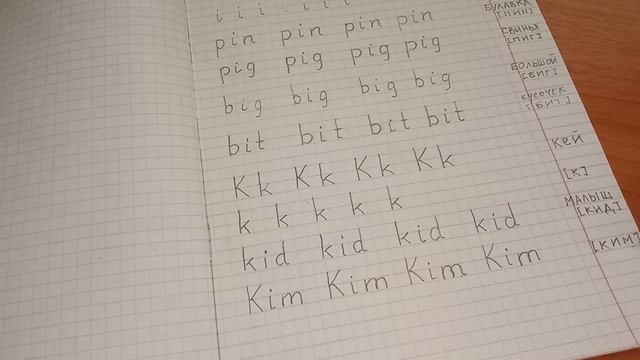 i i i i i i
pin pin pin pin БУЛАВКА
[ПИН]
pig pig pig pig СВИНЬЯ
[ПИГ]
big big big big БОЛЬШОЙ
[БИГ]
bit bit bit bit КУСОЧЕК
[БИТ]
Kk Kk Kk Kk Кей
k k k k k [К]
kid kid kid kid МАЛЫШ
[КИД]
Kim Kim Kim Kim [КИМ]